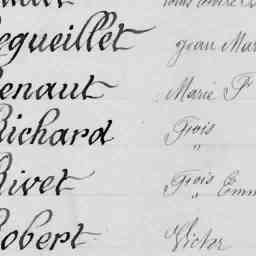 egueillet Jean Mar
enaut Marie F
Richard Frois
"
Rivet Frois Emm
"
Robert Victor